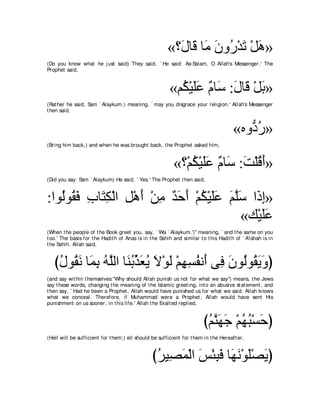 «هَلْ تَدْرُونَ مَا قَالَ؟»
(Do you know what he just said) They said, `He said: As-Salam, O Allah's Messenger.' The
Prophet said,
«بَلْ قَالَ: سَامٌ عَلَيْكُم»
(Rather he said; Sam `Alaykum.) meaning, `may you disgrace your religion.' Allah's Messenger
then said,
«رُدُّوه»
(Bring him back,) and when he was brought back, the Prophet asked him,
«أَقُلْتَ: سَامٌ عَلَيْكُمْ؟»
(Did you say; Sam `Alaykum) He said, `Yes.' The Prophet then said,
«إِذَا سَلَّمَ عَلَيْكُمْ أَحَدٌ مِنْ أَهْلِ الْكِتَابِ فَقُولُوا:
عَلَيْك»
(When the people of the Book greet you, say, `Wa `Alaykum.')'' meaning, `and the same on you
too.' The basis for the Hadith of Anas is in the Sahih and similar to this Hadith of `A'ishah is in
the Sahih. Allah said,
(وَيَقُولُونَ فِى أَنفُسِهِمْ لَوْلاَ يُعَذِّبُنَا اللَّهُ بِمَا نَقُولُ)
(and say within themselves:"Why should Allah punish us not for what we say'') means, the Jews
say these words, changing the meaning of the Islamic greeting, into an abusive statement, and
then say, `Had he been a Prophet, Allah would have punished us for what we said. Allah knows
what we conceal. Therefore, if Muhammad were a Prophet, Allah would have sent His
punishment on us sooner, in this life.' Allah the Exalted replied,
(حَسْبُهُمْ جَهَنَّمُ)
(Hell will be sufficient for them;) ell should be sufficient for them in the Hereafter,
(يَصْلَوْنَهَا فَبِئْسَ الْمَصِيرُ)